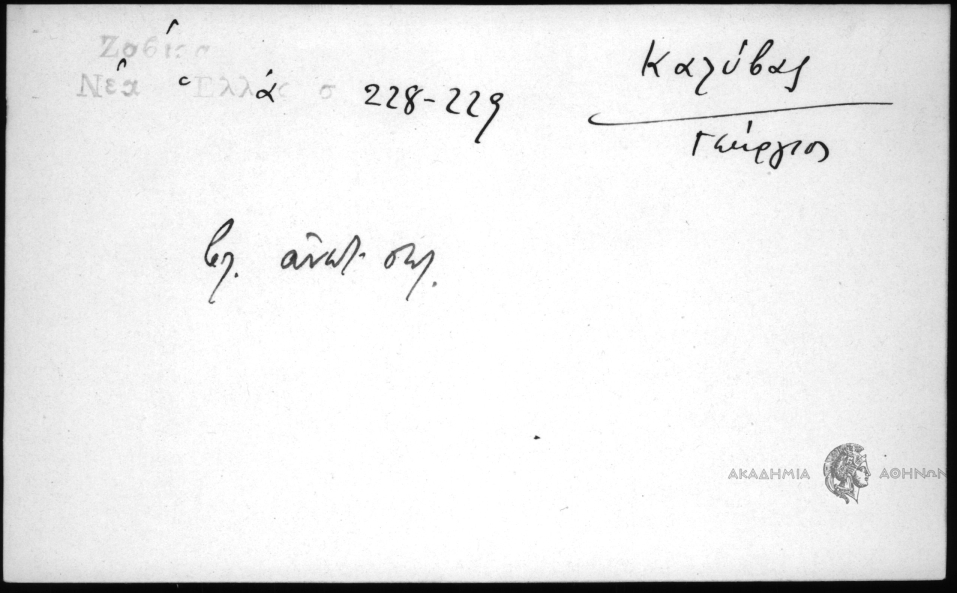 Ζαβίρα
Νέα Ἑλλάς σ 228-229
Καλύβας
Γεώργιος
βλ. ἀνωτ. σελ.
ΑΚΑΔΗΜΙΑ ΑΘΗΝΩΝ